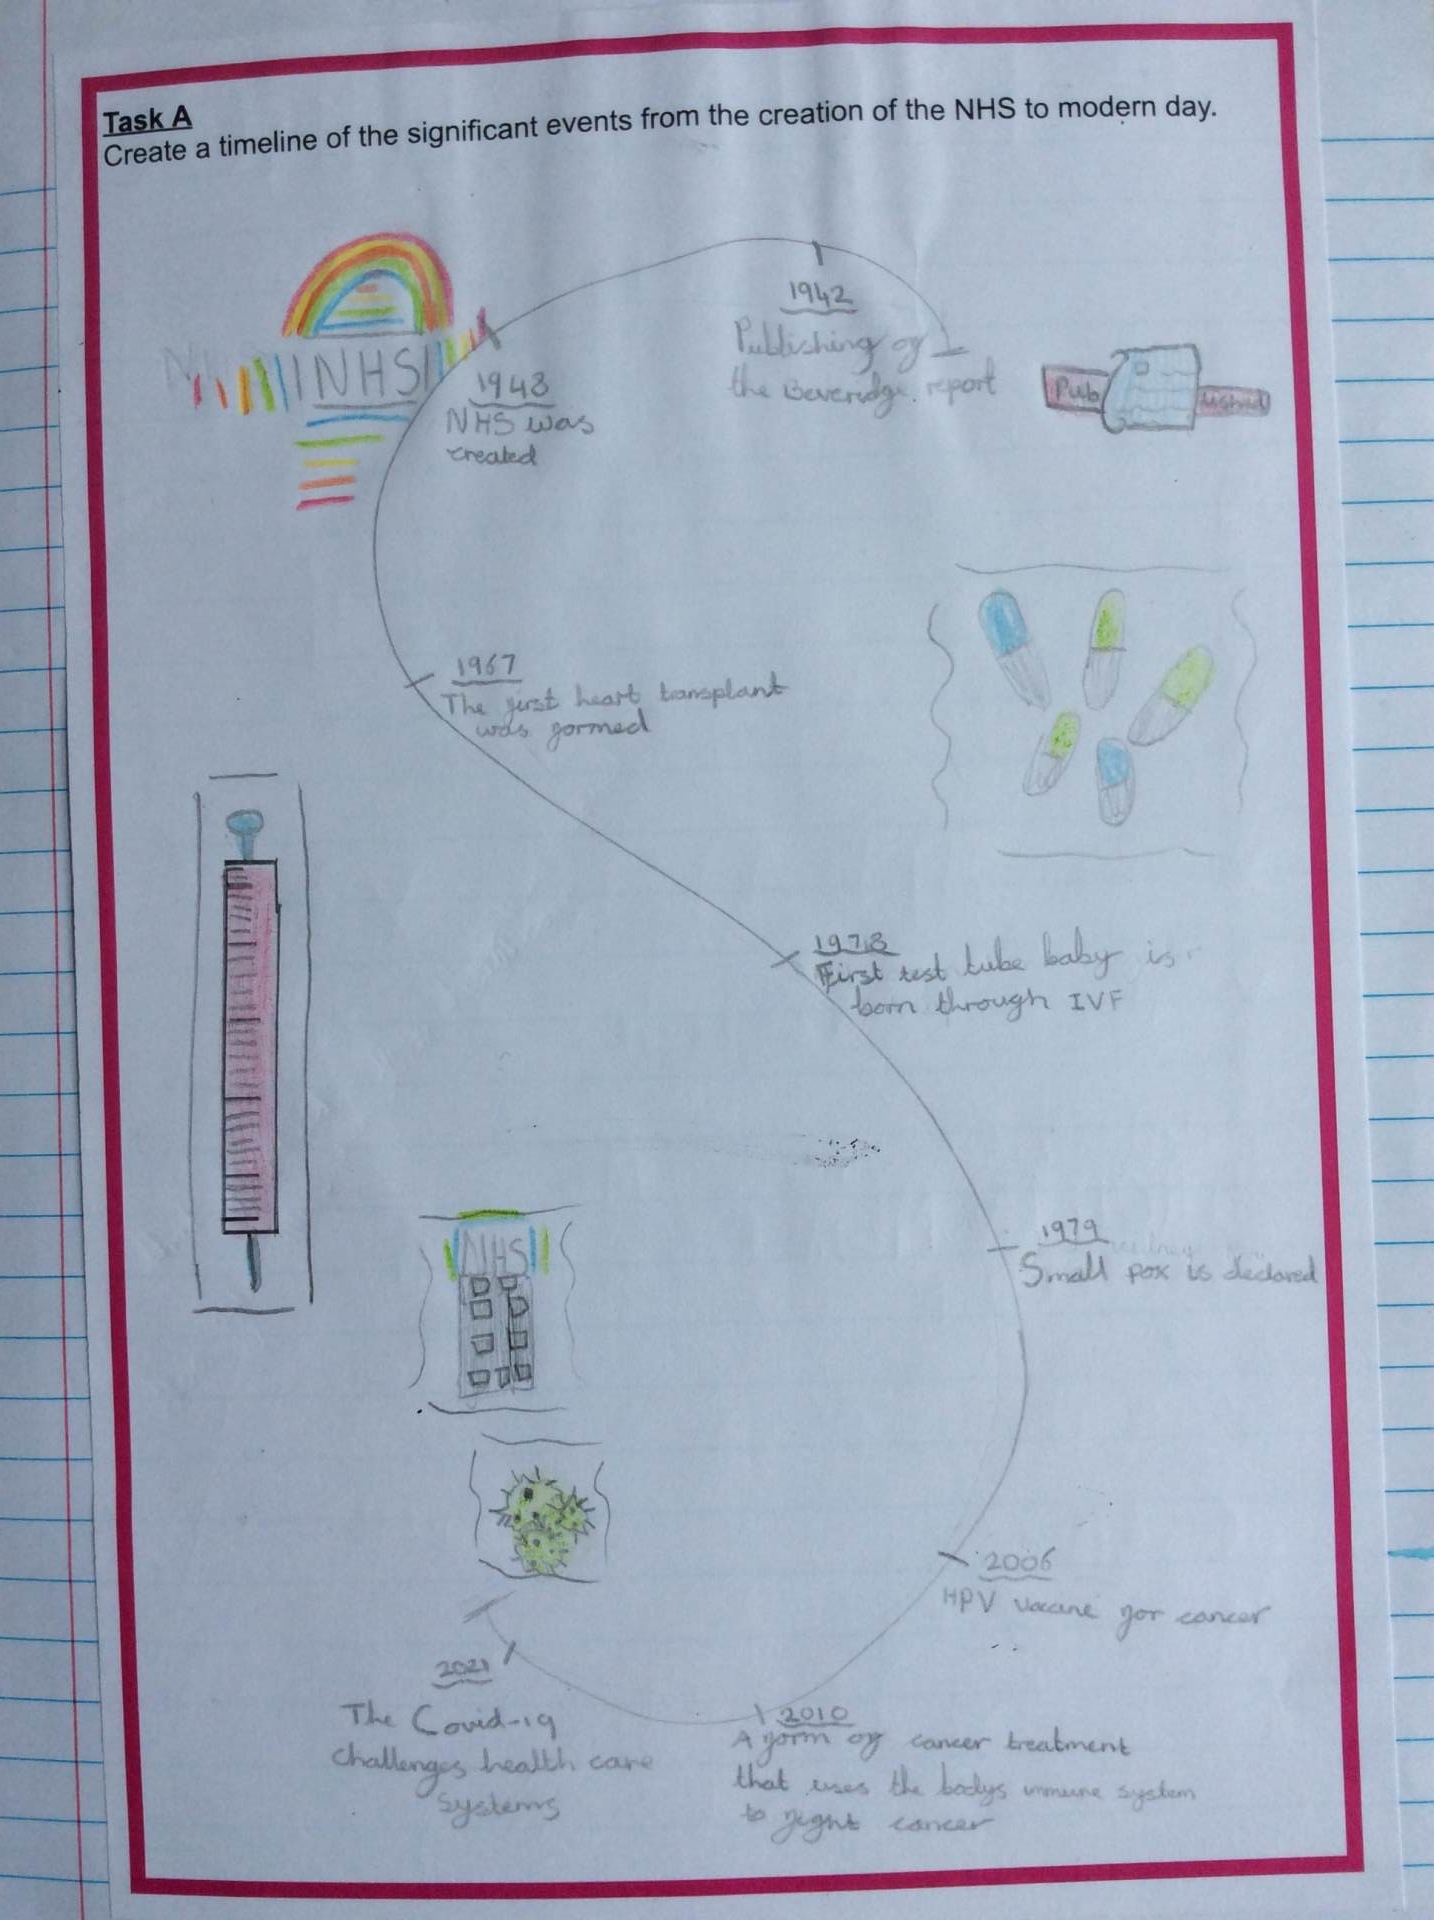 Task A
Create a timeline of the significant events from the creation of the NHS to modern day.
1942
Publishing of
the Beveridge report
Published
NHS
1948
NHS was
created
1967
The first heart transplant
was formed
1978
First test tube baby is
born through IVF
1979
Small pox is declared
NHS
2006
HPV vaccine for cancer
2010
A form of cancer treatment
that uses the bodys immune system
to fight cancer
2021
The Covid-19
challenges health care
systems